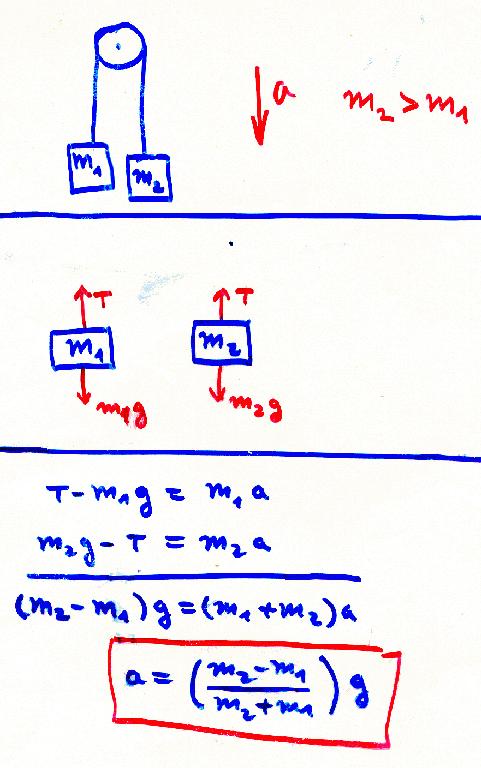 a m₂ > m₁
m₁ m₂
T T
m₁ m₂
m₁g m₂g
T - m₁g = m₁a
m₂g - T = m₂a
(m₂ - m₁)g = (m₁ + m₂)a
a = ((m₂ - m₁)/(m₂ + m₁)) g